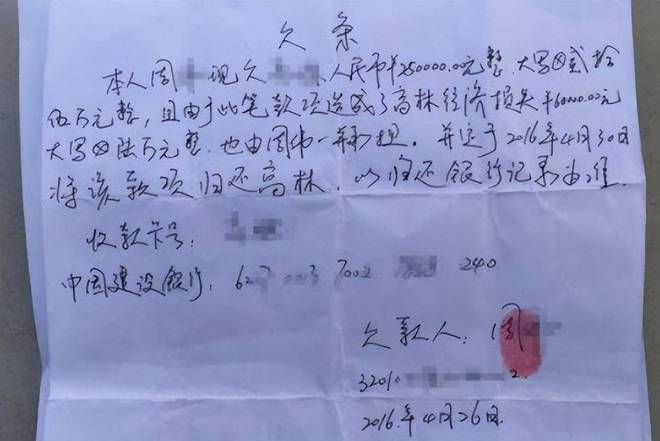 欠条
本人周 现欠 人民币¥250000.00元整,大写贰拾
伍万元整,且由于此笔款项造成了高林经济损失¥60000.00元
大写陆万元整,也由周 一并承担,并定于2016年4月30日
将该款项归还高林,以归还银行记录为准.
收款卡号:
中国建设银行: 62 700 240
欠款人: 周
3201 2
2016年4月26日.